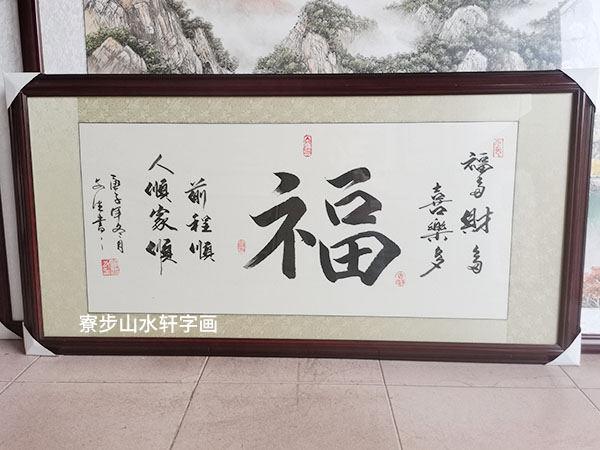 福多財多
喜樂多
福
前程順
人順家順
庚子年冬月
書
寮步山水轩字画